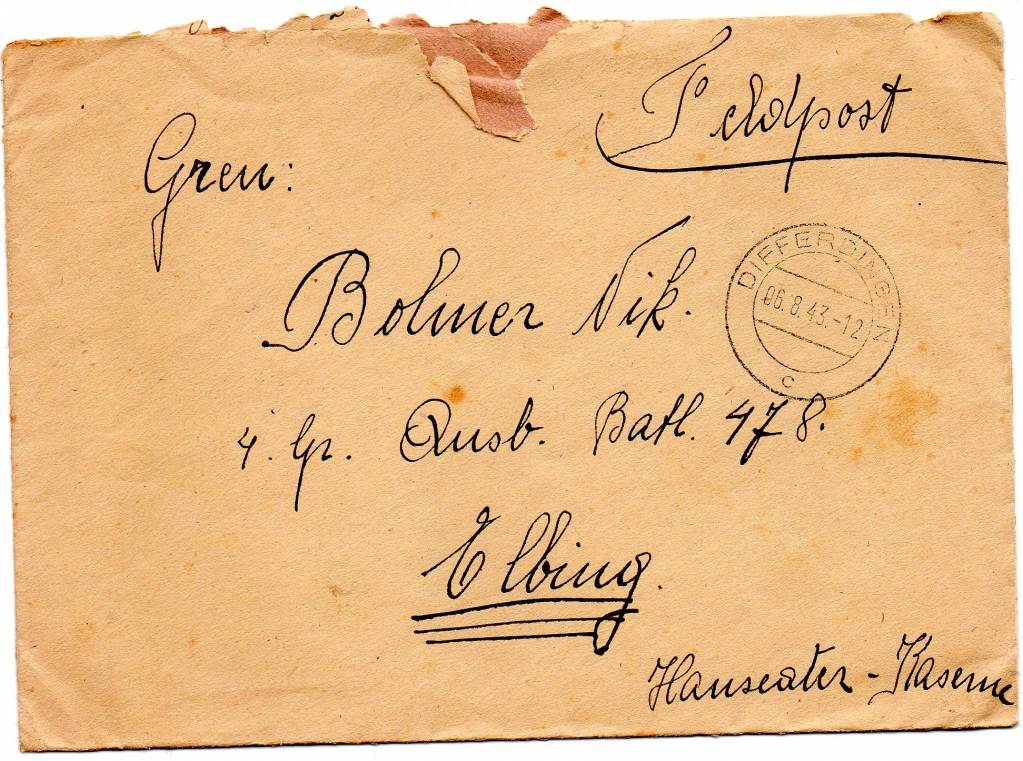 Feldpost
Gren:
Bohmer Nik.
DIFFERDINGEN
06.8.43.-12
c
4. Gr. Ausb. Batl. 478.
Elbing.
Hanseaten-Kaserne